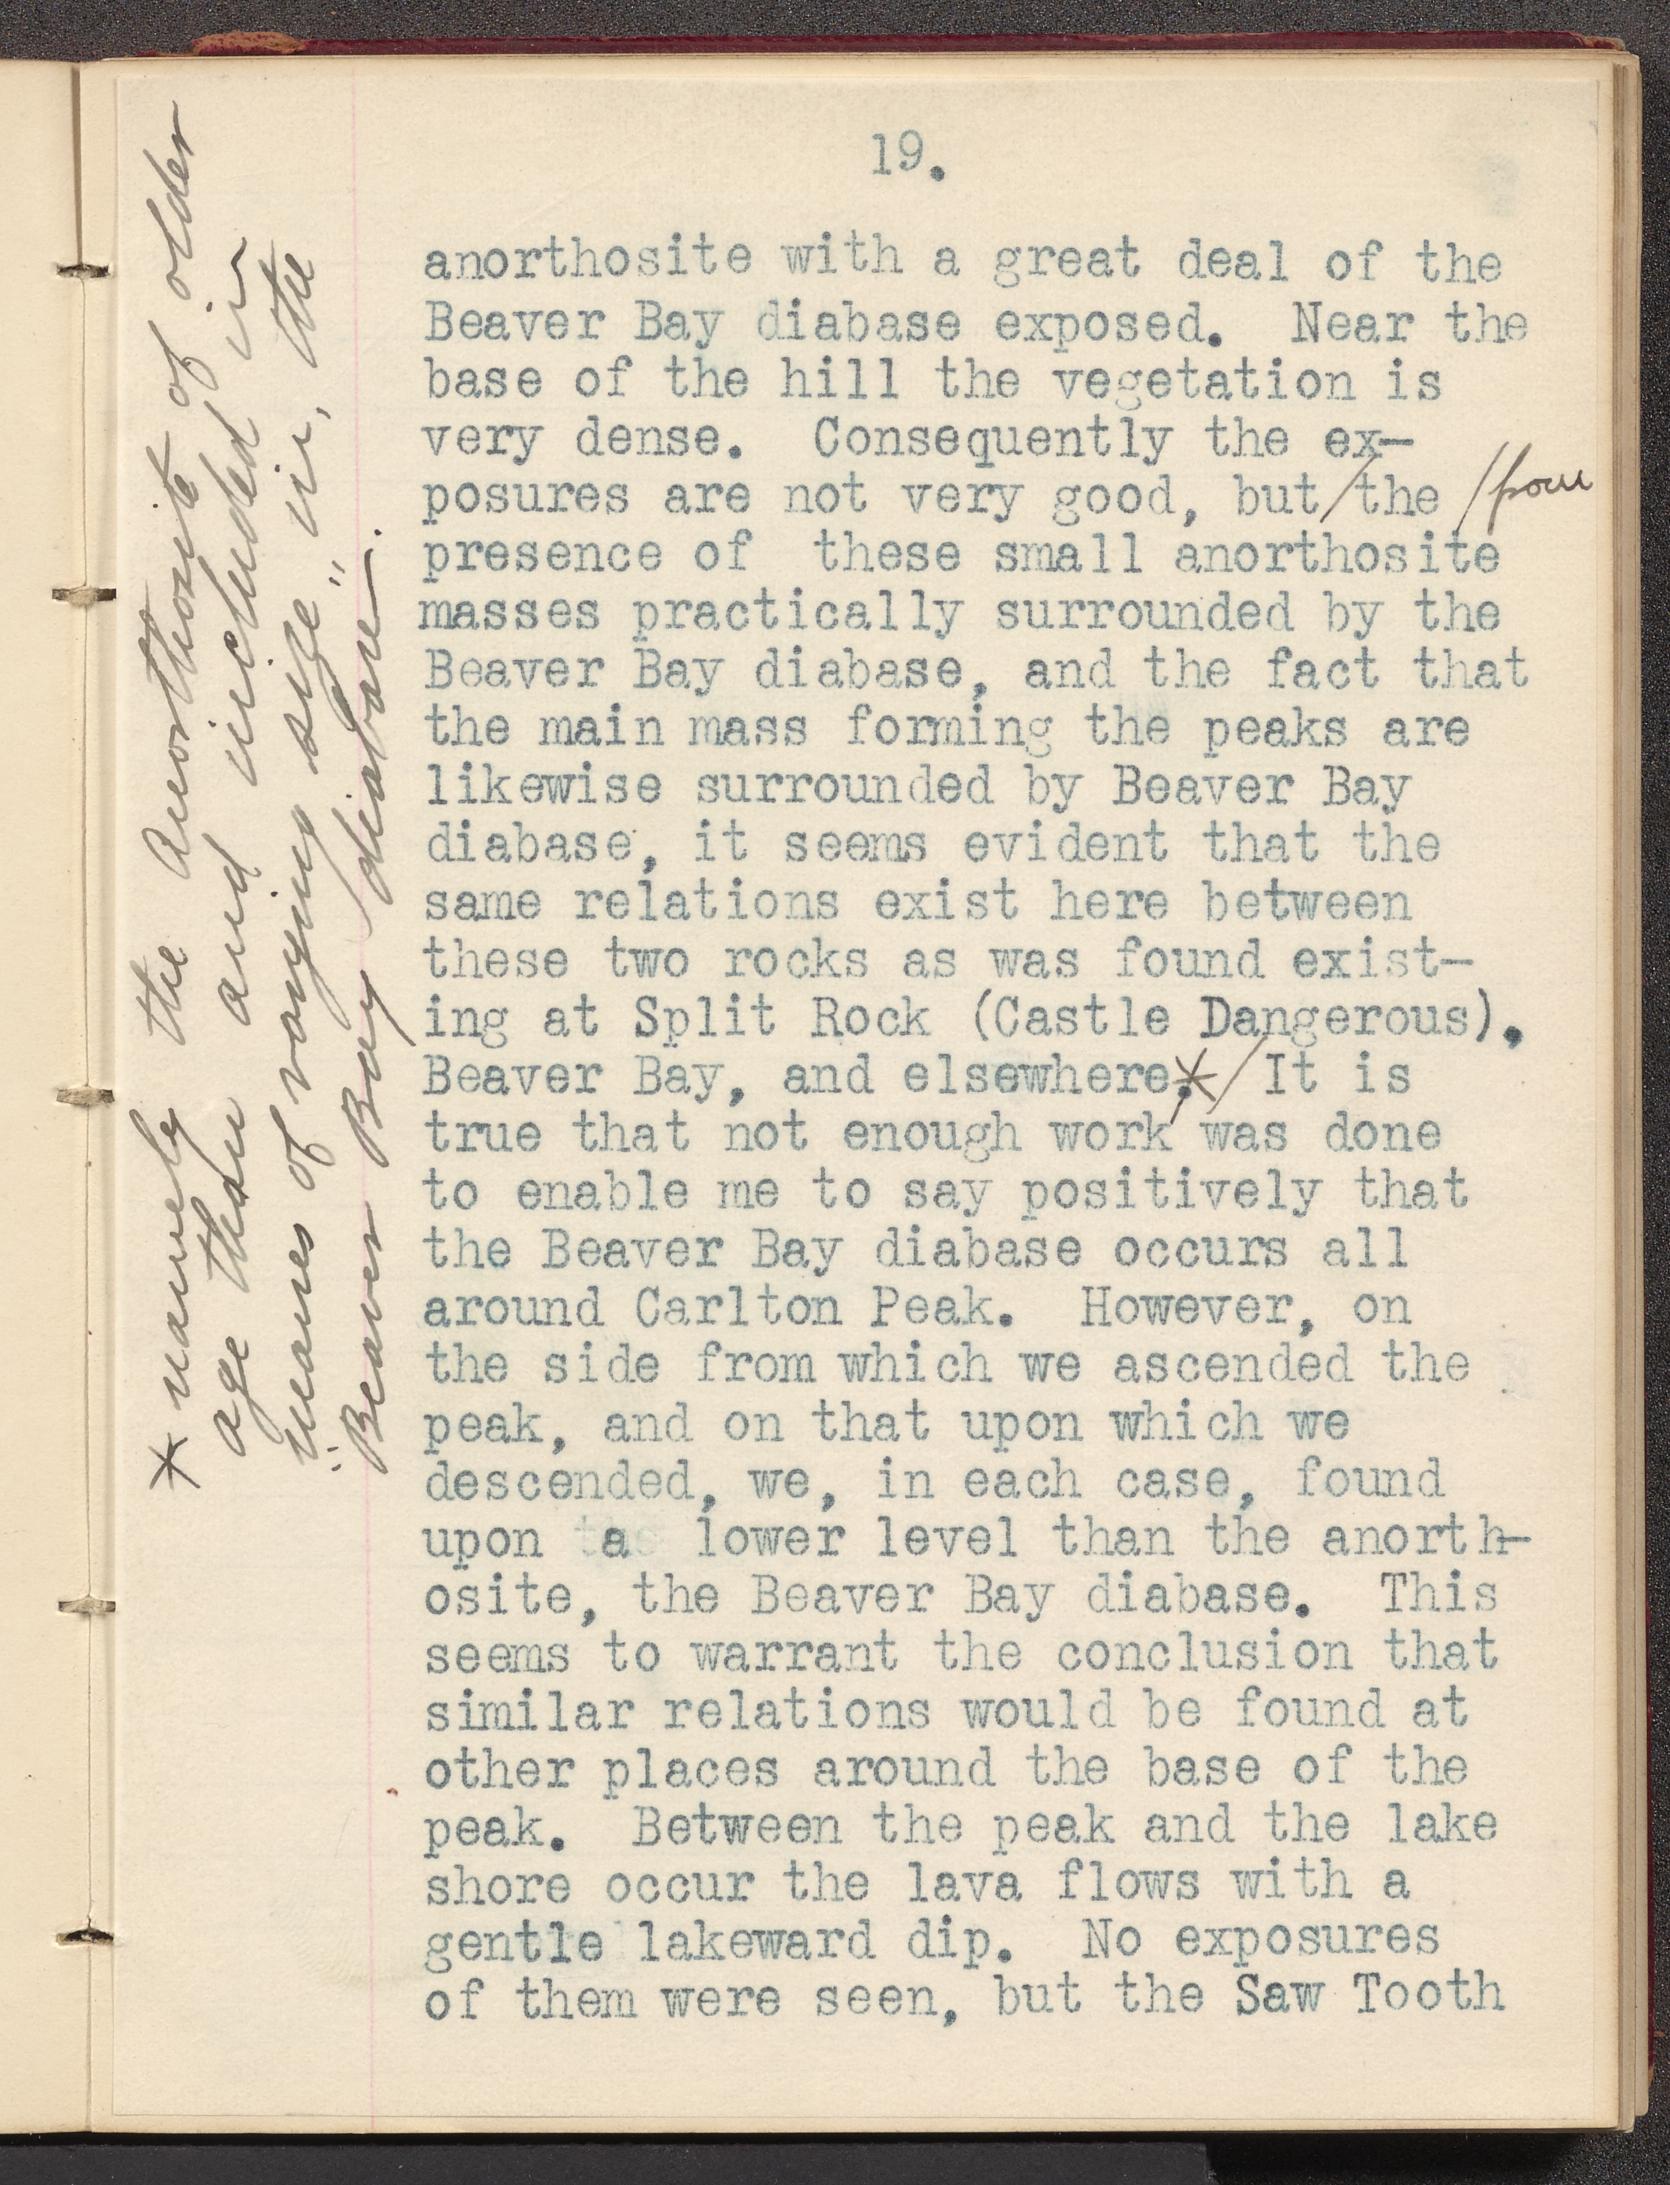 19.
anorthosite with a great deal of the
Beaver Bay diabase exposed. Near the
base of the hill the vegetation is
very dense. Consequently the ex-
posures are not very good, but/the /from
presence of these small anorthosite
masses practically surrounded by the
Beaver Bay diabase, and the fact that
the main mass forming the peaks are
likewise surrounded by Beaver Bay
diabase, it seems evident that the
same relations exist here between
these two rocks as was found exist-
ing at Split Rock (Castle Dangerous),
Beaver Bay, and elsewhere.*/ It is
true that not enough work was done
to enable me to say positively that
the Beaver Bay diabase occurs all
around Carlton Peak. However, on
the side from which we ascended the
peak, and on that upon which we
descended, we, in each case, found
upon a lower level than the anorth-
osite, the Beaver Bay diabase. This
seems to warrant the conclusion that
similar relations would be found at
other places around the base of the
peak. Between the peak and the lake
shore occur the lava flows with a
gentle lakeward dip. No exposures
of them were seen, but the Saw Tooth
* namely the anorthosite of older
age than and included in
masses of varying size, in, the
Beaver Bay diabase.